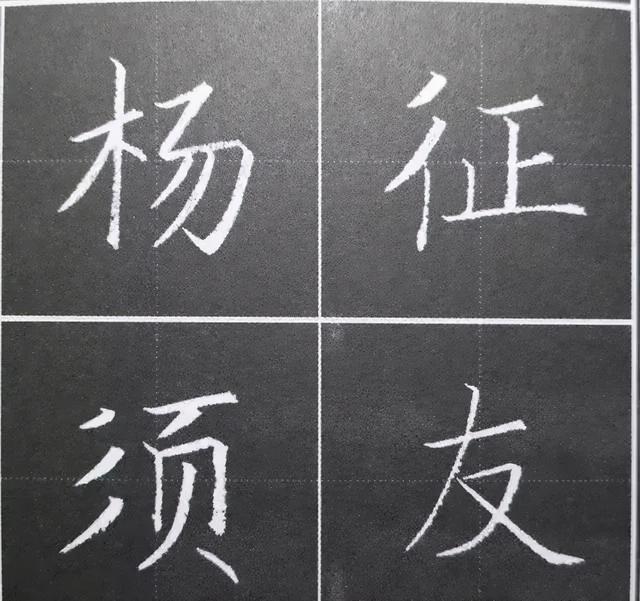 杨征
须友